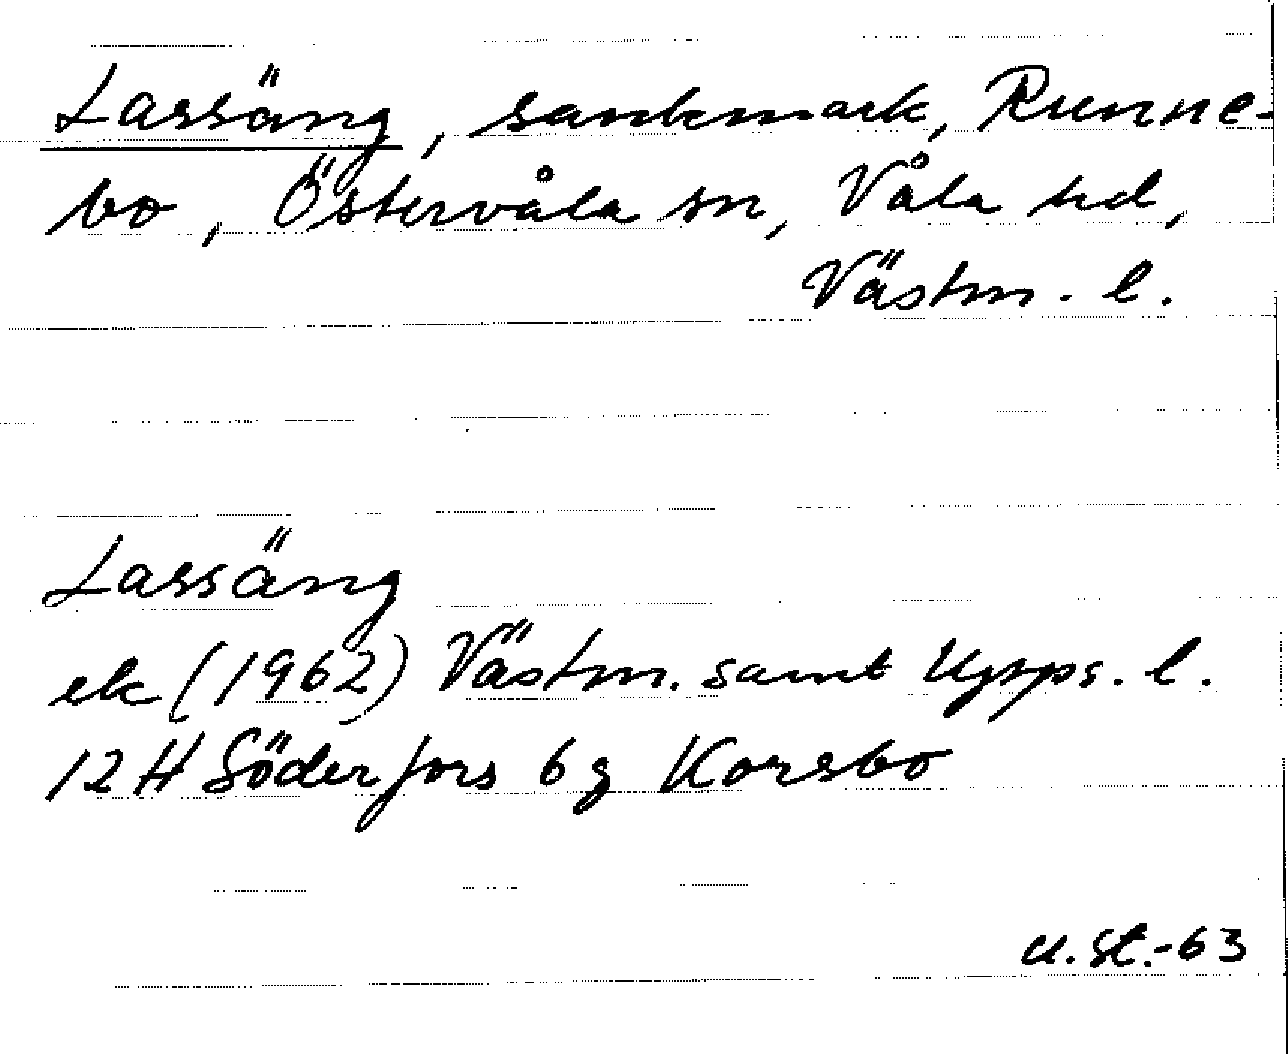 Lassäng, sankmark, Runne-
bo, Östervåla sn, Våla hd,
Västm. l.
Lassäng
ek (1962) Västm. samt Upps. l.
12 H Söderfors 6 g Korsbo
U. St.-63